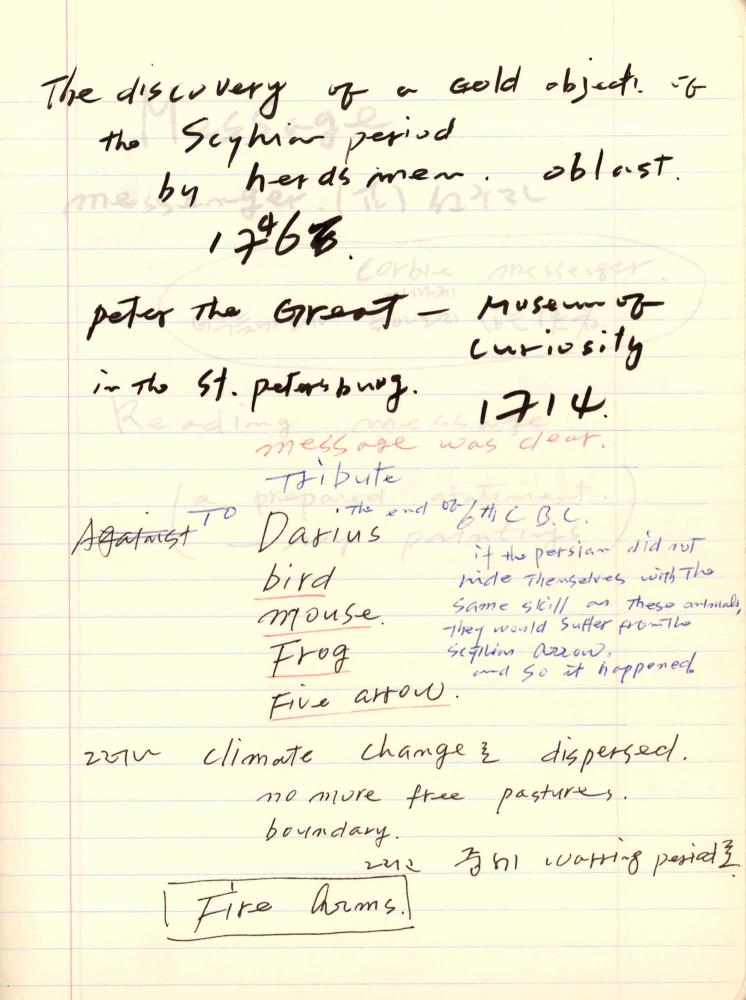 The discovery of a Gold object. of
the Scyhian period
by herdsmen. oblast.
1764.
peter the Great — Museum of
curiosity
in the St. petersburg. 1714.
message was clear.
Tribute
Against TO Darius the end of 6th C B.C.
bird
mouse.
Frog
Five arrow.
if the persian did not
hide themselves with the
same skill as these animals,
they would suffer from the
scythian arrow.
and so it happened
그러나 climate change로 dispersed.
no more free pastures.
boundary.
그리고 warring period로
Fire Arms.